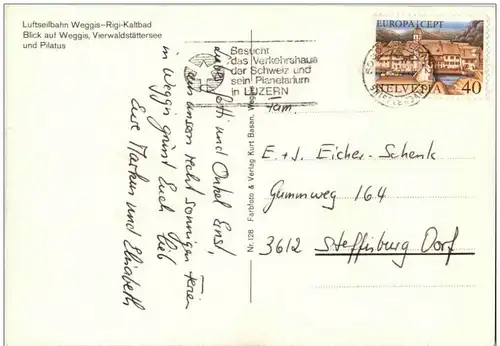 Luftseilbahn Weggis–Rigi-Kaltbad
Blick auf Weggis, Vierwaldstättersee
und Pilatus
Besucht
das Verkehrshaus
der Schweiz und
sein Planetarium
in LUZERN
EUROPA CEPT
HELVETIA 40
und Onkel Ernst,
aus unsern recht sonnigen Ferien
in Weggis grüsst Euch lieb
Eure Markus und Elisabeth
Nr. 128 Farbfoto & Verlag Kurt Basan,
Fam.
E. + J. Eicher-Schenk
Gummweg 164
3612 Steffisburg Dorf